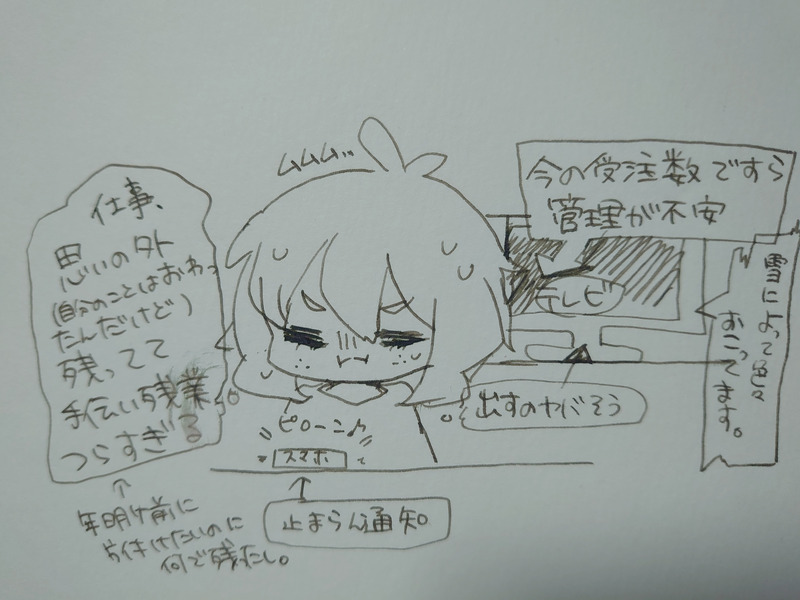 ムムム…
今の受注数ですら
管理が不安
テレビ
雪によって色々
おこってます。
出すのヤバそう
仕事、
思いの外
(自分のことはおわっ
たんだけど)
残ってて
手伝い残業
つらすぎる
ピローン♪
スマホ
止まらん通知。
年明け前に
片付けたいのに
何で残たし。